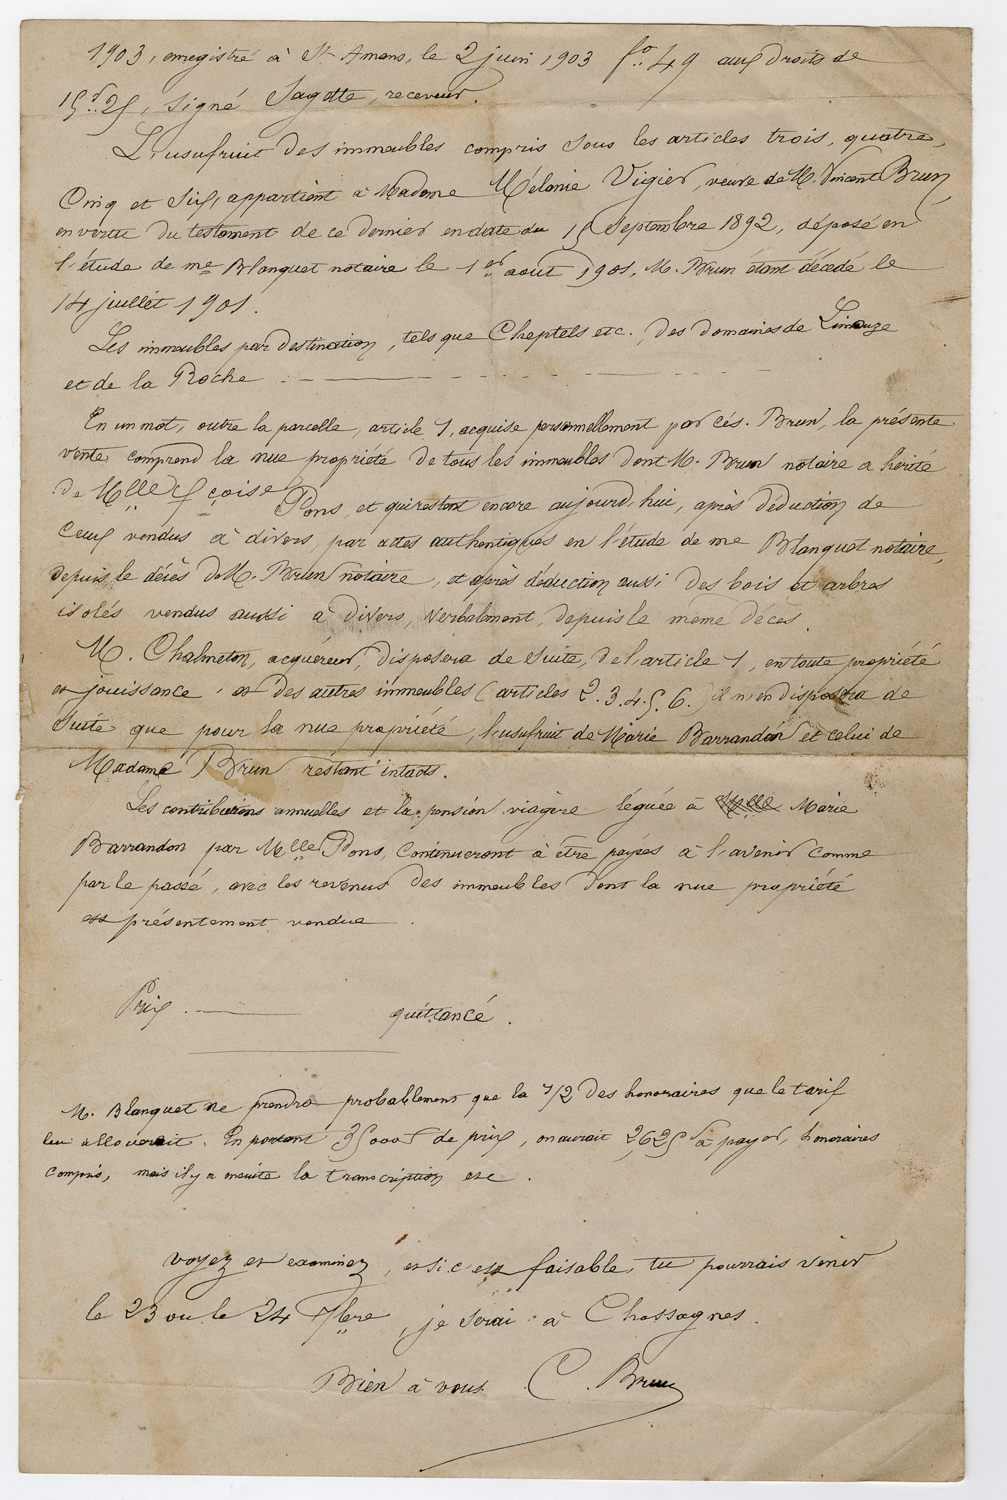 1903, enregistré à St Amans, le 2 juin 1903 fo. 49 aux droits de
15f.25, signé Sagette, receveur.
L'usufruit des immeubles compris sous les articles trois, quatre,
Cinq et Six, appartient à Madame Mélanie Vigier, veuve de M. Vincent Brun,
en vertu du testament de ce dernier en date du 15 Septembre 1892, déposé en
l'étude de me Blanquet notaire le 1er août 1901, M. Brun étant décédé le
14 juillet 1901.
Les immeubles par destination, tels que Cheptels etc. des domaines de Limouze
et de la Roche
En un mot, outre la parcelle, article 1, acquise personnellement par Cés. Brun, la présente
vente comprend la nue propriété de tous les immeubles dont M. Brun notaire a hérité
de Mlle Fçoise Pons, et qui restent encore aujourd'hui, après déduction de
Ceux vendus à divers, par actes authentiques en l'étude de me Blanquet notaire,
depuis le décès de M. Brun notaire, et après déduction aussi des bois et arbres
isolés vendus aussi à divers, verbalement, depuis le même décès.
M. Chalmeton, acquéreur, disposera de suite, de l'article 1, en toute propriété
et jouissance, et des autres immeubles (articles 2.3.4.5.6.) il n'en disposera de
suite que pour la nue propriété, l'usufruit de Marie Barrandon et celui de
Madame Brun restant intacts.
Les contributions annuelles et la pension viagère léguée à Mlle Marie
Barrandon par Mlle Pons, continueront à être payées à l'avenir comme
par le passé, avec les revenus des immeubles dont la nue propriété
est présentement vendue.
Prix quittancé.
M. Blanquet ne prendra probablement que la 1/2 des honoraires que le tarif
lui allouerait. En portant 35000f de prix, on aurait 2,625f à payer, honoraires
compris, mais il y a ensuite la transcription etc.
Voyez et examinez, et si c'est faisable, tu pourrais venir
le 23 ou le 24 7bre, je serai à Chassagnes.
Bien à vous C. Brun